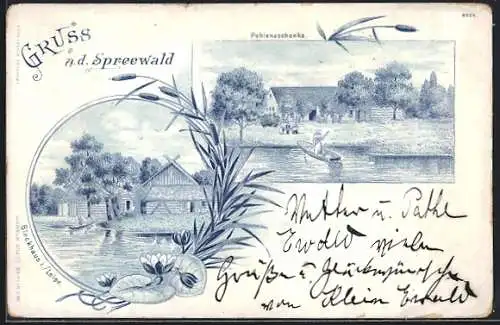 GRUSS
a. d. Spreewald
Pohlenzschenke.
Blockhaus i/Leipe.
Mutter u. Pathe
Ewald viele
Grüße u Glückwünsche
von Klein Ewald